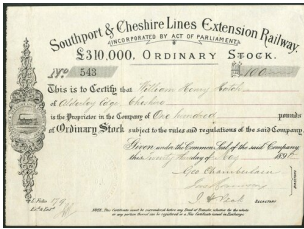 Southport & Cheshire Lines Extension Railway.
INCORPORATED BY ACT OF PARLIAMENT
£310,000, ORDINARY STOCK.
No 543 £100
This is to Certify that William Henry
of Alderley Edge, Cheshire
is the Proprietor in the Company of One hundred pounds
of Ordinary Stock subject to the rules and regulations of the said Company
Given under the Common Seal of the said Company
this day of 189
Chamberlain
SECRETARY
NOTE. This Certificate must be surrendered before any Deed of Transfer whether for the whole
or any portion thereof can be registered or a New Certificate issued in Exchange.